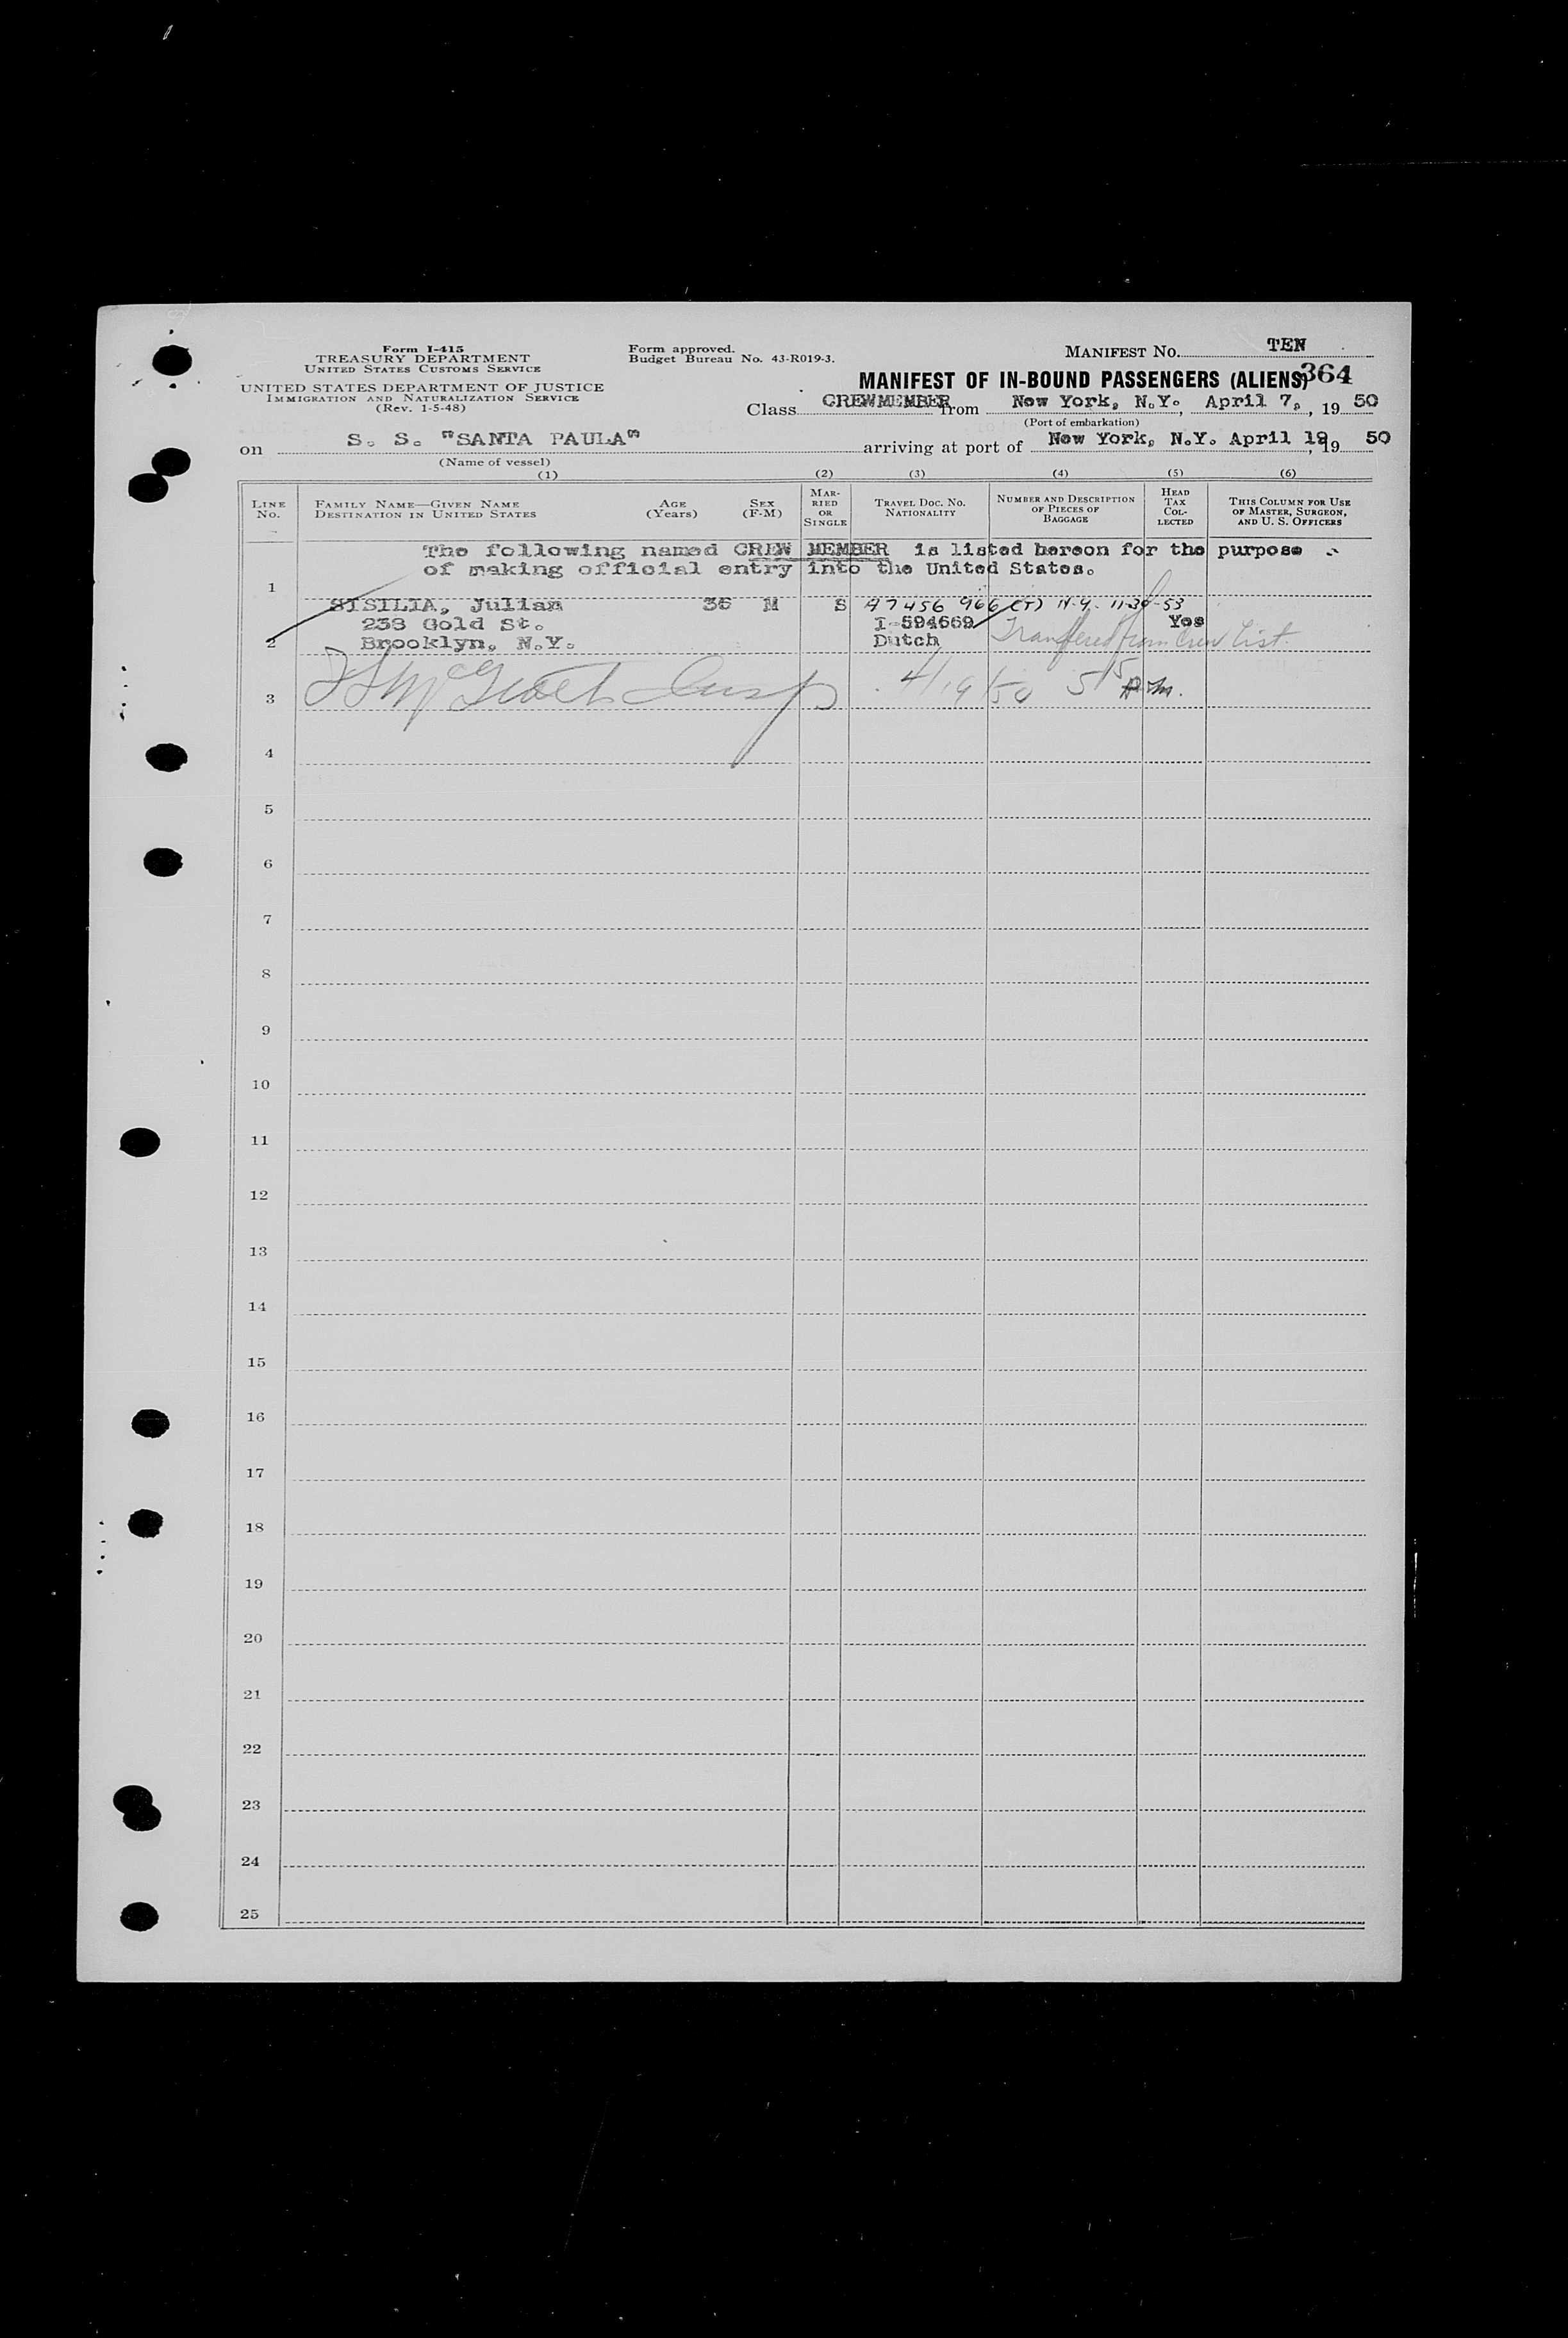 Form I-415
TREASURY DEPARTMENT
UNITED STATES CUSTOMS SERVICE
UNITED STATES DEPARTMENT OF JUSTICE
IMMIGRATION AND NATURALIZATION SERVICE
(Rev. 1-5-48)
Form approved.
Budget Bureau No. 43-R019-3.
MANIFEST NO. TEN
MANIFEST OF IN-BOUND PASSENGERS (ALIENS) 364
Class CREWMEMBER from New York, N.Y., April 7, , 19 50
(Port of embarkation)
on S. S. "SANTA PAULA" arriving at port of New York, N.Y. April 19, 19 50
(Name of vessel)
(1) (2) (3) (4) (5) (6)
LINE No. FAMILY NAME—GIVEN NAME DESTINATION IN UNITED STATES AGE (Years) SEX (F-M) MARRIED OR SINGLE TRAVEL DOC. NO. NATIONALITY NUMBER AND DESCRIPTION OF PIECES OF BAGGAGE HEAD TAX COLLECTED THIS COLUMN FOR USE OF MASTER, SURGEON, AND U. S. OFFICERS
The following named CREW MEMBER is listed hereon for the purpose
of making official entry into the United States.
1
SISILIA, Julian 36 M S A7 456 966 (T) N.Y. 11-30-53
238 Gold St. I-594669 Yes
2 Brooklyn, N.Y. Dutch Transferred from Crew List.
3 Insp 4/19/50 5 15 P.m.
4
5
6
7
8
9
10
11
12
13
14
15
16
17
18
19
20
21
22
23
24
25